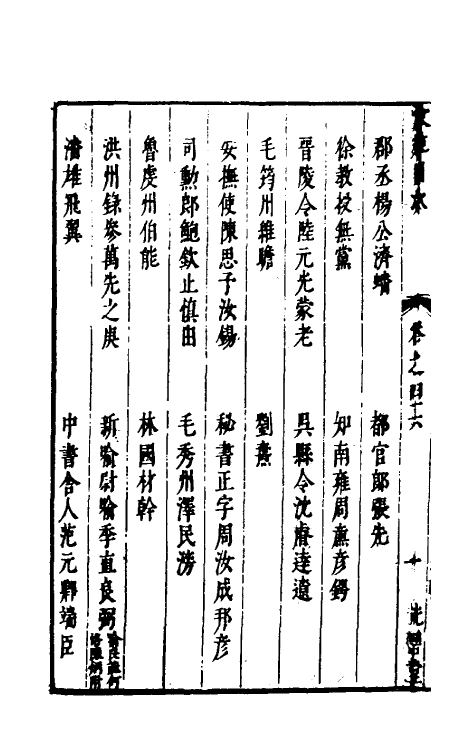 卷之四十六
十
郡丞楊公濟蟠
都官郎張先
徐教授無黨
知南雍周燾彦鍔
晉陵令陸元光蒙老
吳縣令沈睿達遼
毛筠州維瞻
劉燾
安撫使陳思予汝錫
秘書正字周汝成邦彦
司勳郎鮑欽止慎由
毛秀州澤民滂
魯虔州伯能
林國材幹
洪州錄參萬先之庚
新喻尉喻季直良弼
潘雄飛翼
中書舍人范元卿端臣